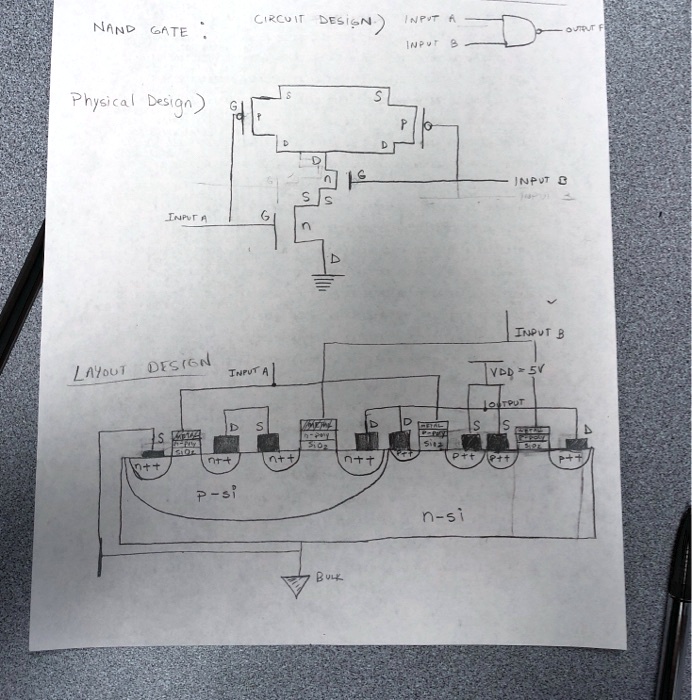 NAND GATE :
CIRCUIT DESIGN)
INPUT A
OUTPUT F
INPUT B
Physical Design)
S
S
G
P
P
D
D
D
n
G
INPUT B
S
S
INPUT A
G
n
D
INPUT B
LAYOUT DESIGN
INPUT A
VDD = 5V
OUTPUT
S
METAL
n-poly
SiO2
D
S
METAL
n-poly
SiO2
D
D
METAL
P-poly
SiO2
S
S
METAL
P-poly
SiO2
D
n++
n++
n++
n++
P++
P++
P++
P++
p-si
n-si
BULK